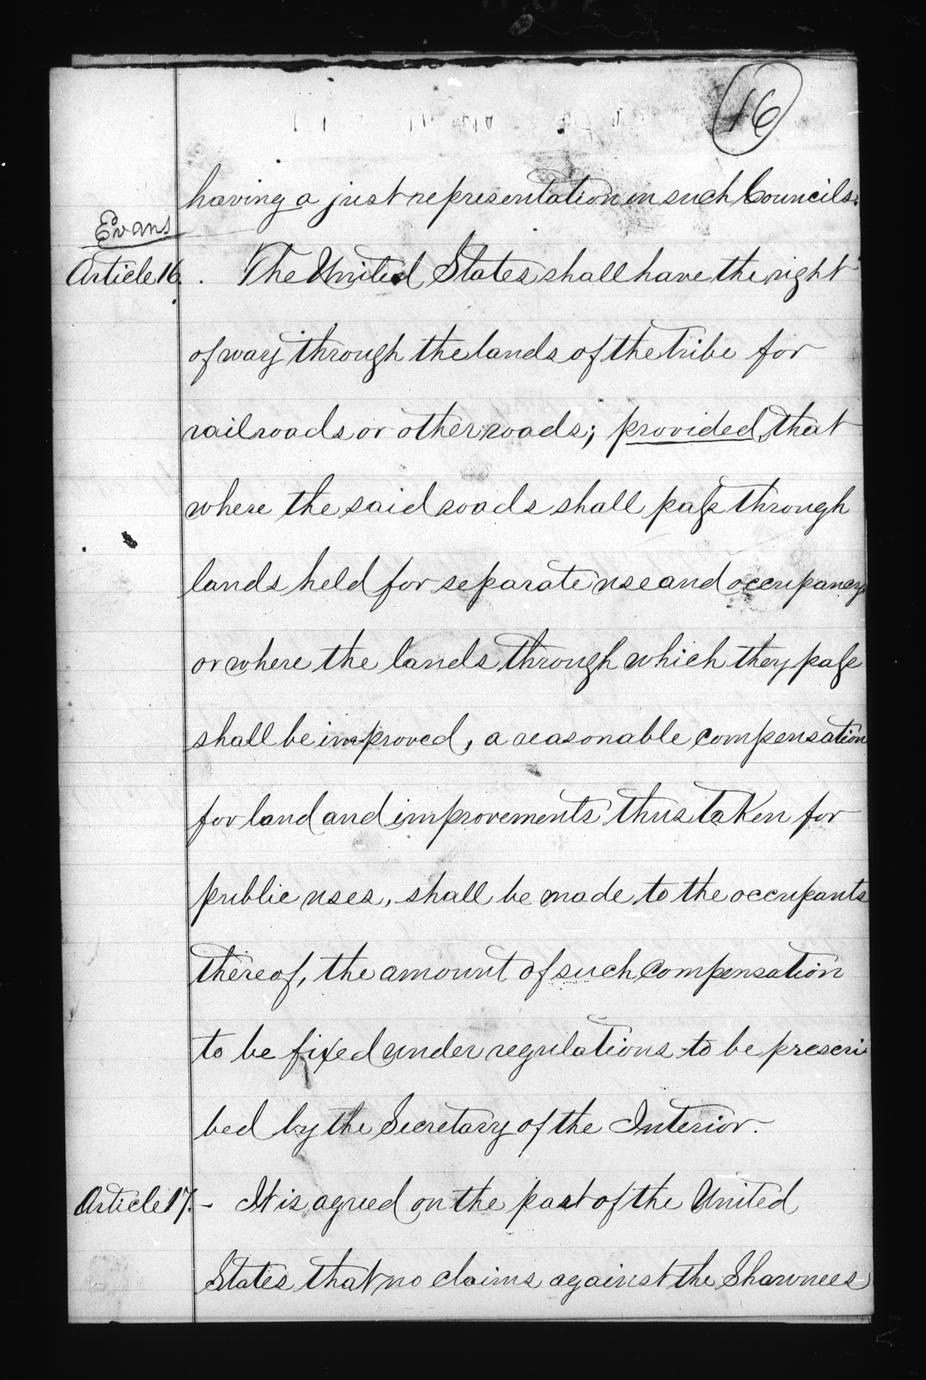 16
having a just representation in such Councils.
Evans
Article 16. The United States shall have the right
of way through the lands of the tribe for
railroads or other roads; provided, that
where the said roads shall pass through
lands held for separate use and occupancy,
or where the lands through which they pass
shall be improved, a reasonable compensation
for land and improvements thus taken for
public uses, shall be made to the occupants
thereof, the amount of such compensation
to be fixed under regulations to be prescri
bed by the Secretary of the Interior.
Article 17. - It is agreed on the part of the United
States that no claims against the Shawnees